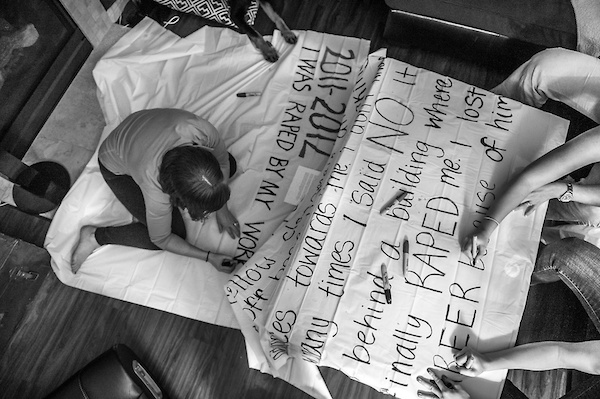 2011-2012
I WAS RAPED BY MY WORK
towards the
many times I said NO. It
behind a building where
inally RAPED me. I lost
REER because of him